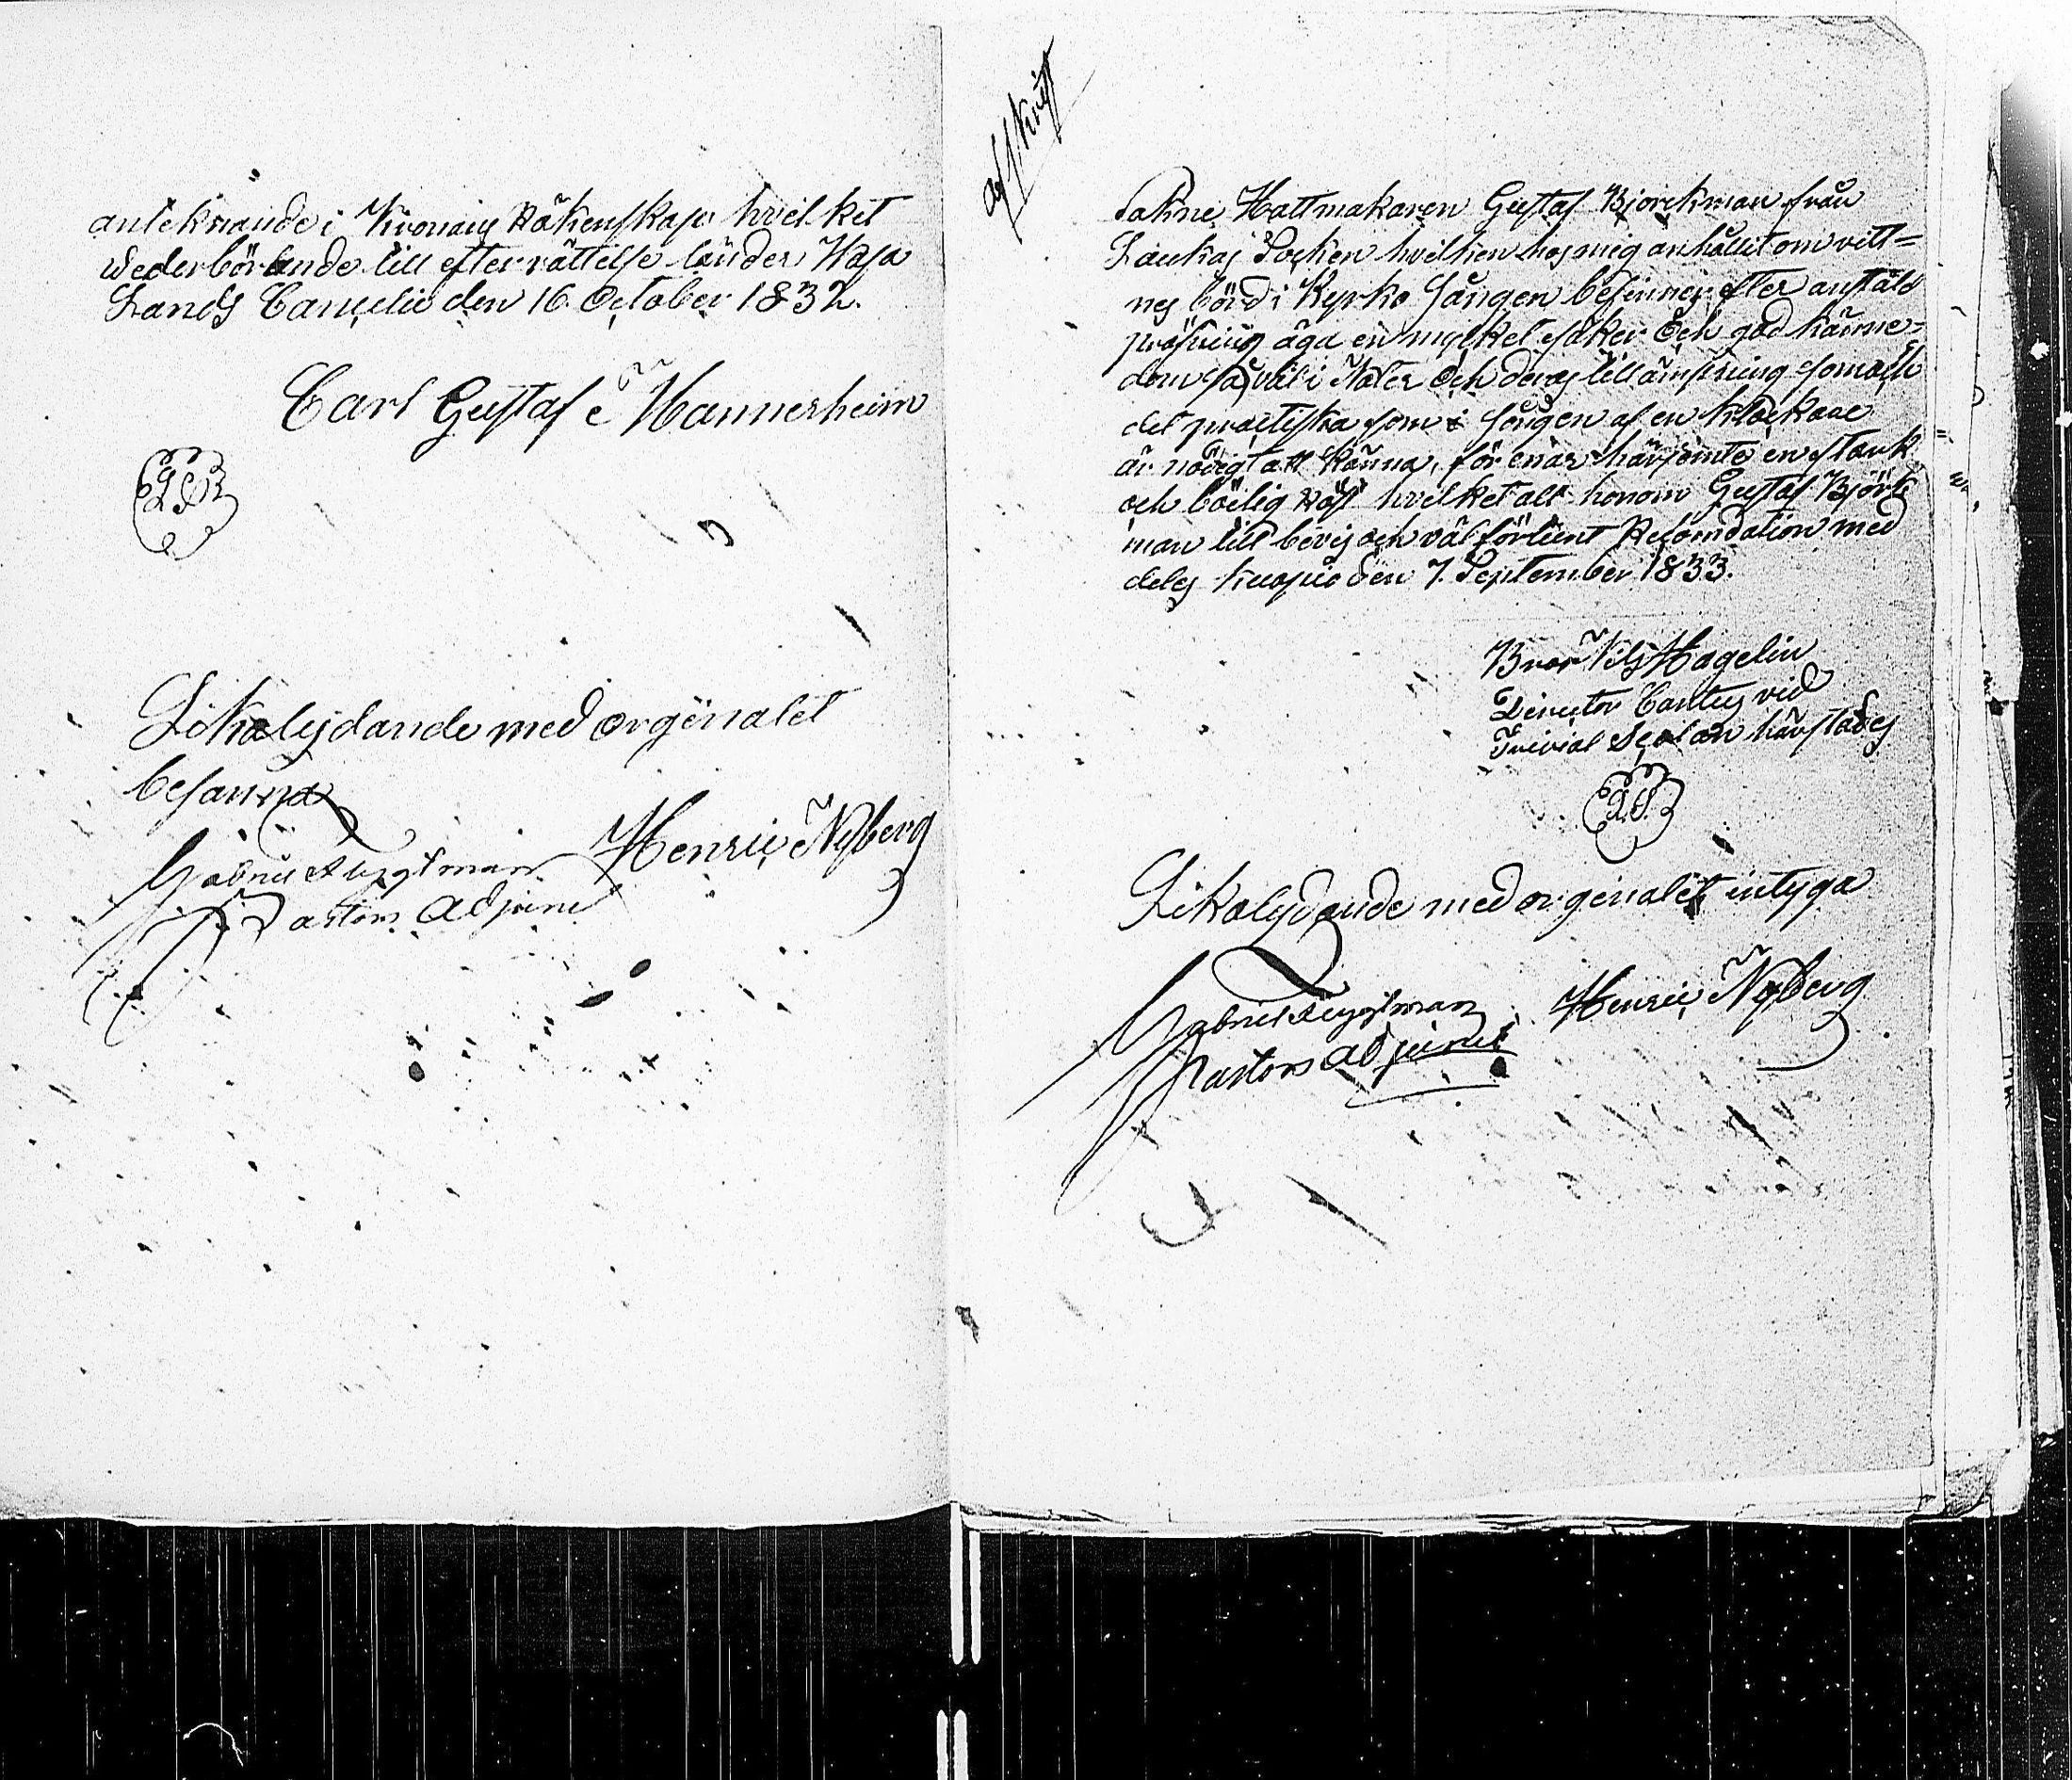 anteknande i Kronans Räkenskap hvilket
wederbörande till efterrättelse länder Wasa
Lands Cancelie den 16 October 1832.
Carl Gustaf Mannerheim
L.S.
Lika lydande med orginalet
besanna
Henric Nyberg
Pastors Adjunct
afskrift
Hattmakaren Gustaf Bjorckman från
Laukas Socken hvilken hos mig anhållit om vitt=
nes börd i Kyrko sången besinnes efter anstäld
pröfning äga en mycket säker och god känne=
dom så väl i Noter och deras tillämpning som ock
det practiska som i sången af en klockare
är nödigt att känna, förenar härjemte en stark
och böilig röst hvilket alt honom Gustaf Björk
man till bevis och väl förtient Recomdation med
deles Kuopio den 7. September 1833.
Hagelin
Director Cantus vid
Trivial Scolan härstädes
L.S.
Lika lydande med orginalet intyga
Henric Nyberg
Pastors Adjunct